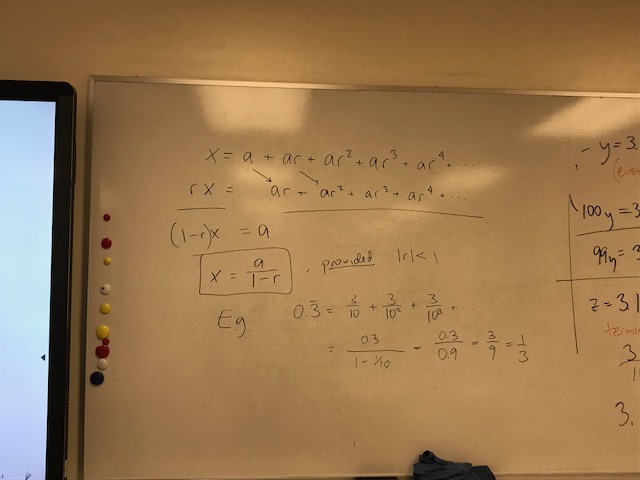 x = a + ar + ar² + ar³ + ar⁴ + ......
rx = ar + ar² + ar³ + ar⁴ + ...
(1-r)x = a
x = a/(1-r) , provided |r| < 1
E.g. 0.3̄ = 3/10 + 3/10² + 3/10³ + ..
= 0.3/(1 - 1/10) = 0.3/0.9 = 3/9 = 1/3
- y = 3.
100y = 3
99y = 3
z = 3.1
3
3.